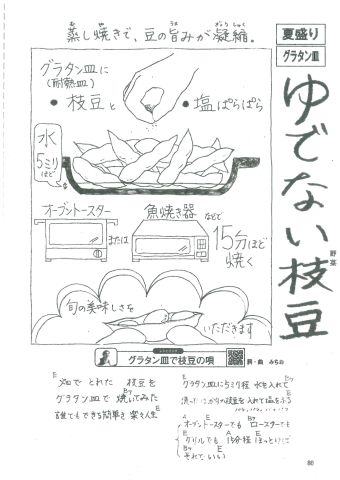 蒸し焼きで、豆の旨みが凝縮。
夏盛り
グラタン皿
ゆでない枝豆
野菜
グラタン皿に
(耐熱皿)
・枝豆と
・塩ぱらぱら
水
5ミリ
ほど
オーブントースター
または
魚焼き器などで
15分ほど
焼く
旬の美味しさを
いただきます
グラタン皿で枝豆の唄
詞・曲 みちお
E
畑で とれた 枝豆を
E B7
グラタン皿で 焼いてみた
誰でもできる簡単さ 楽々人生
E
グラタン皿に5ミリ程 水を入れて
B7
枝豆を入れて塩をふる
A E B7
オーブントースターでも ロースターでも
E A E
グリルでも 15分程 ほっとけば
B7 E
それでいい
80